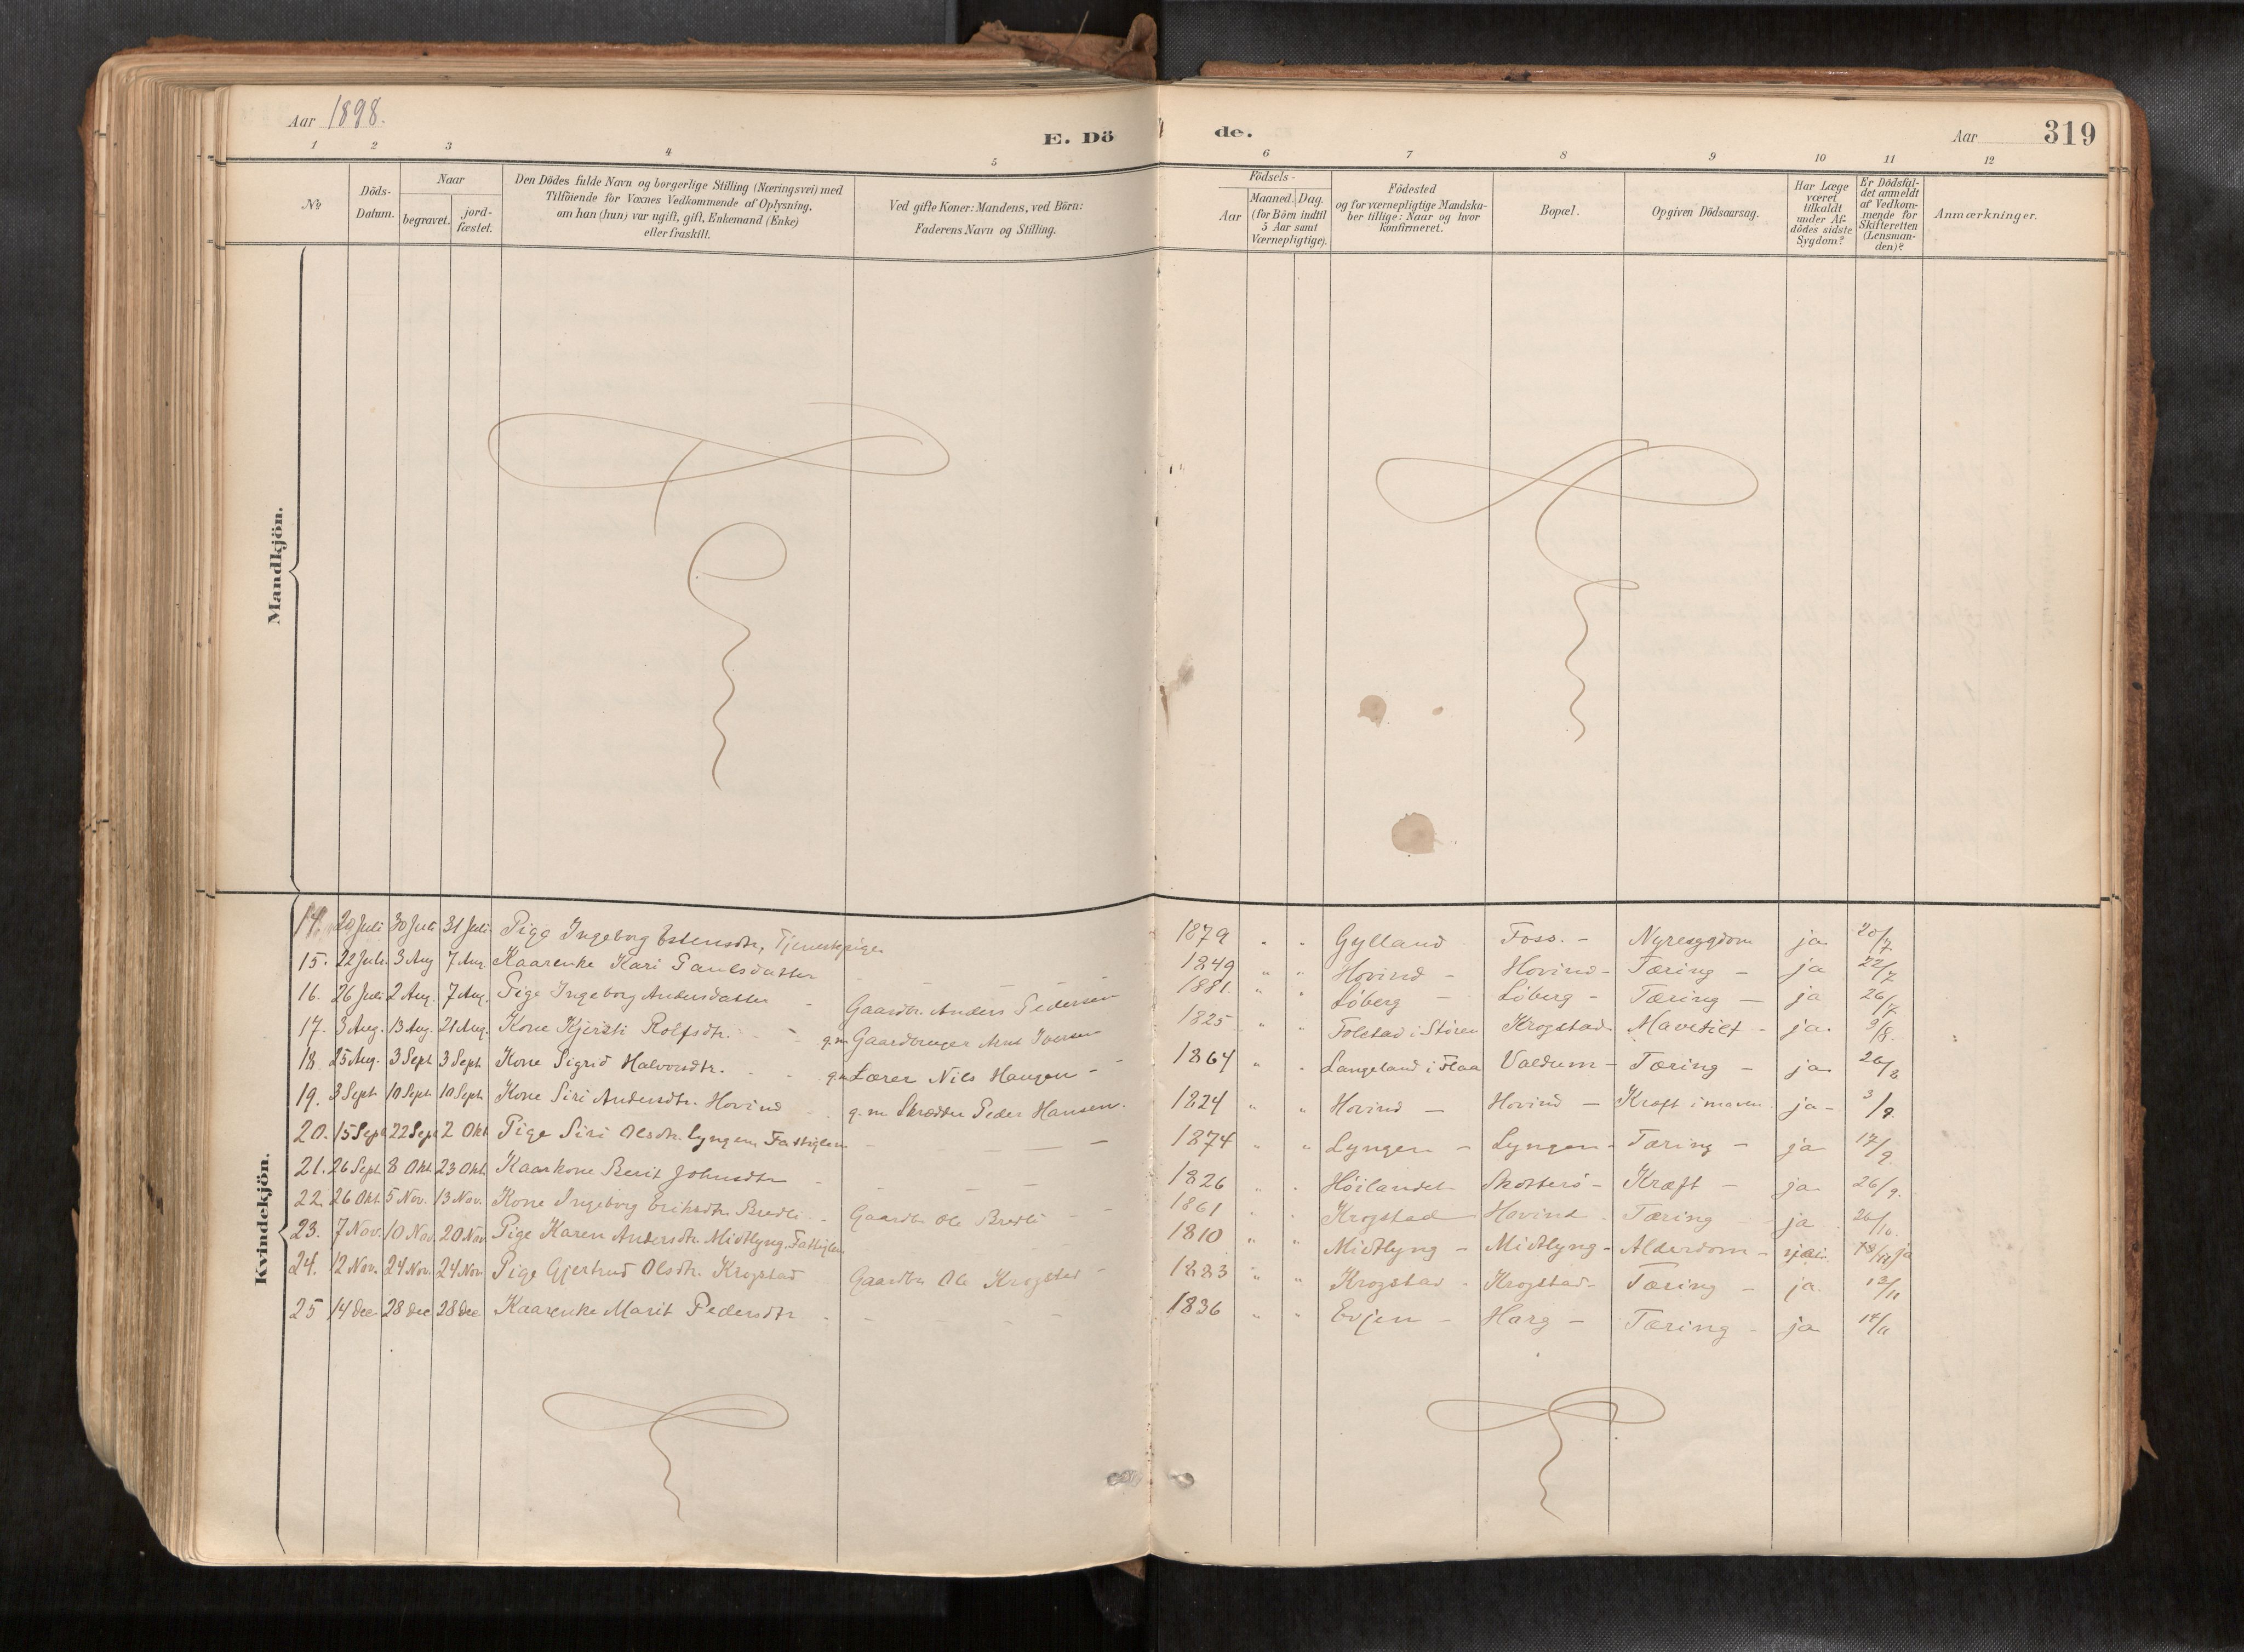 Aar 1898.
E. Dö
de.
Aar
319
1 2 3 4 5 6 7 8 9 10 11 12
№
Döds-
Datum.
Naar
begravet.
jord-
fæstet.
Den Dödes fulde Navn og borgerlige Stilling (Næringsvei) med
Tilföiende for Voxnes Vedkommende af Oplysning,
om han (hun) var ugift, gift, Enkemand (Enke)
eller fraskilt.
Ved gifte Koner: Mandens, ved Börn:
Faderens Navn og Stilling.
Födsels-
Aar
Maaned. Dag.
(for Börn indtil
5 Aar samt
Værnepligtige).
Födested
og for værnepligtige Mandska-
ber tillige: Naar og hvor
konfirmeret.
Bopæl.
Opgiven Dödsaarsag.
Har Læge
været
tilkaldt
under Af-
dödes sidste
Sygdom?
Er Dödsfal-
det anmeldt
af Vedkom-
mende for
Skifteretten
(Lensman-
den)?
Anmærkninger.
Mandkjön.
Kvindekjön.
14. 20 Juli 30 Juli 31 Juli Pige Ingeborg Estensdtr, Tjenestepige 1879 " " Gylland Foss. - Nyresygdom ja 20/7
15. 22 Juli 3 Aug 7 Aug Kaarenke Kari Paulsdatter - - - 1849 " " Hovind - Hovind - Tæring - ja 22/7
16. 26 Juli 2 Aug. 7 Aug. Pige Ingeborg Andersdatter - Gaardbr. Anders Pedersen 1881. " " Löberg - Löberg - Tæring - ja 26/7
17. 3 Aug. 13 Aug. 21 Aug. Kone Kjersti Rolfsdtr. - - g.m Gaardbruger Arnt Iversen 1825 " " Folstad i Stören Krogstad Mavetilf - ja. 9/8.
18. 25 Aug. 3 Sept 3 Sept. Kone Sigrid Halvorsdtr. - - g.m Lærer Nils Haugen - 1864 " " Langeland i Flaa Valdum - Tæring - ja 26/8
19. 3 Sept. 10 Sept. 10 Sept. Kone Siri Andersdtr. Hovind - g.m Skrædder Peder Hansen. 1824 " " Hovind - Hovind - Kræft i maven. ja - 3/9.
20. 15 Sept 22 Sept 2 Okt Pige Siri Olsdtr. Lyngen, Fattiglem - - - 1874 " " Lyngen - Lyngen - Tæring - ja 17/9.
21. 26 Sept. 8 Okt. 23 Okt. Kaarkone Berit Johnsdtr - - - 1826 " " Höilandet Skotterö - Kræft - ja 26/9.
22. 26 Okt. 5 Nov. 13 Nov. Kone Ingeborg Eriksdtr. Bredli - Gaardbr Ole Bredli - - 1861 " " Krogstad Hovind - Tæring ja 26/10.
23. 7 Nov. 10 Nov. 20 Nov Pige Karen Andersdtr. Midtlyng. Fattiglem 1810 " " Midtlyng - Midtlyng - Alderdom - nei. 18/11 ja
24. 12 Nov. 24 Nov. 24 Nov Pige Gjertrud Olsdtr. Krogstad Gaardbr Ole Krogstad - 1883 " " Krogstad - Krogstad - Tæring - ja. 13/11
25 14 Dec 28 Dec 28 Dec Kaarenke Marit Pedersdtr - - - - 1836 " " Evjen - Harg - Tæring - ja 14/11